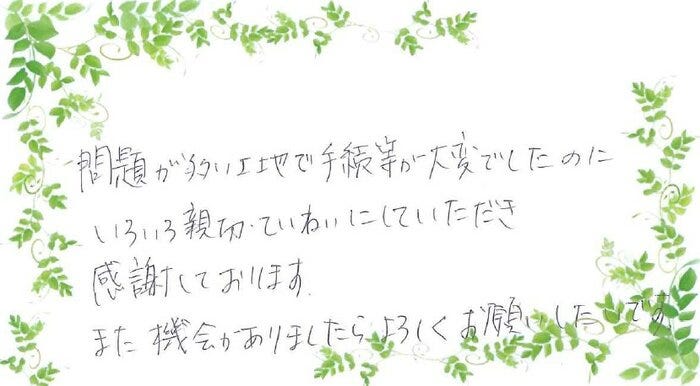 問題が多い土地で手続等が大変でしたのに
いろいろ親切・ていねいにしていただき
感謝しております。
また機会がありましたらよろしくお願いしたいです